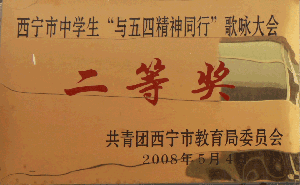 西宁市中学生“与五四精神同行”歌咏大会
二等奖
共青团西宁市教育局委员会
2008年5月4